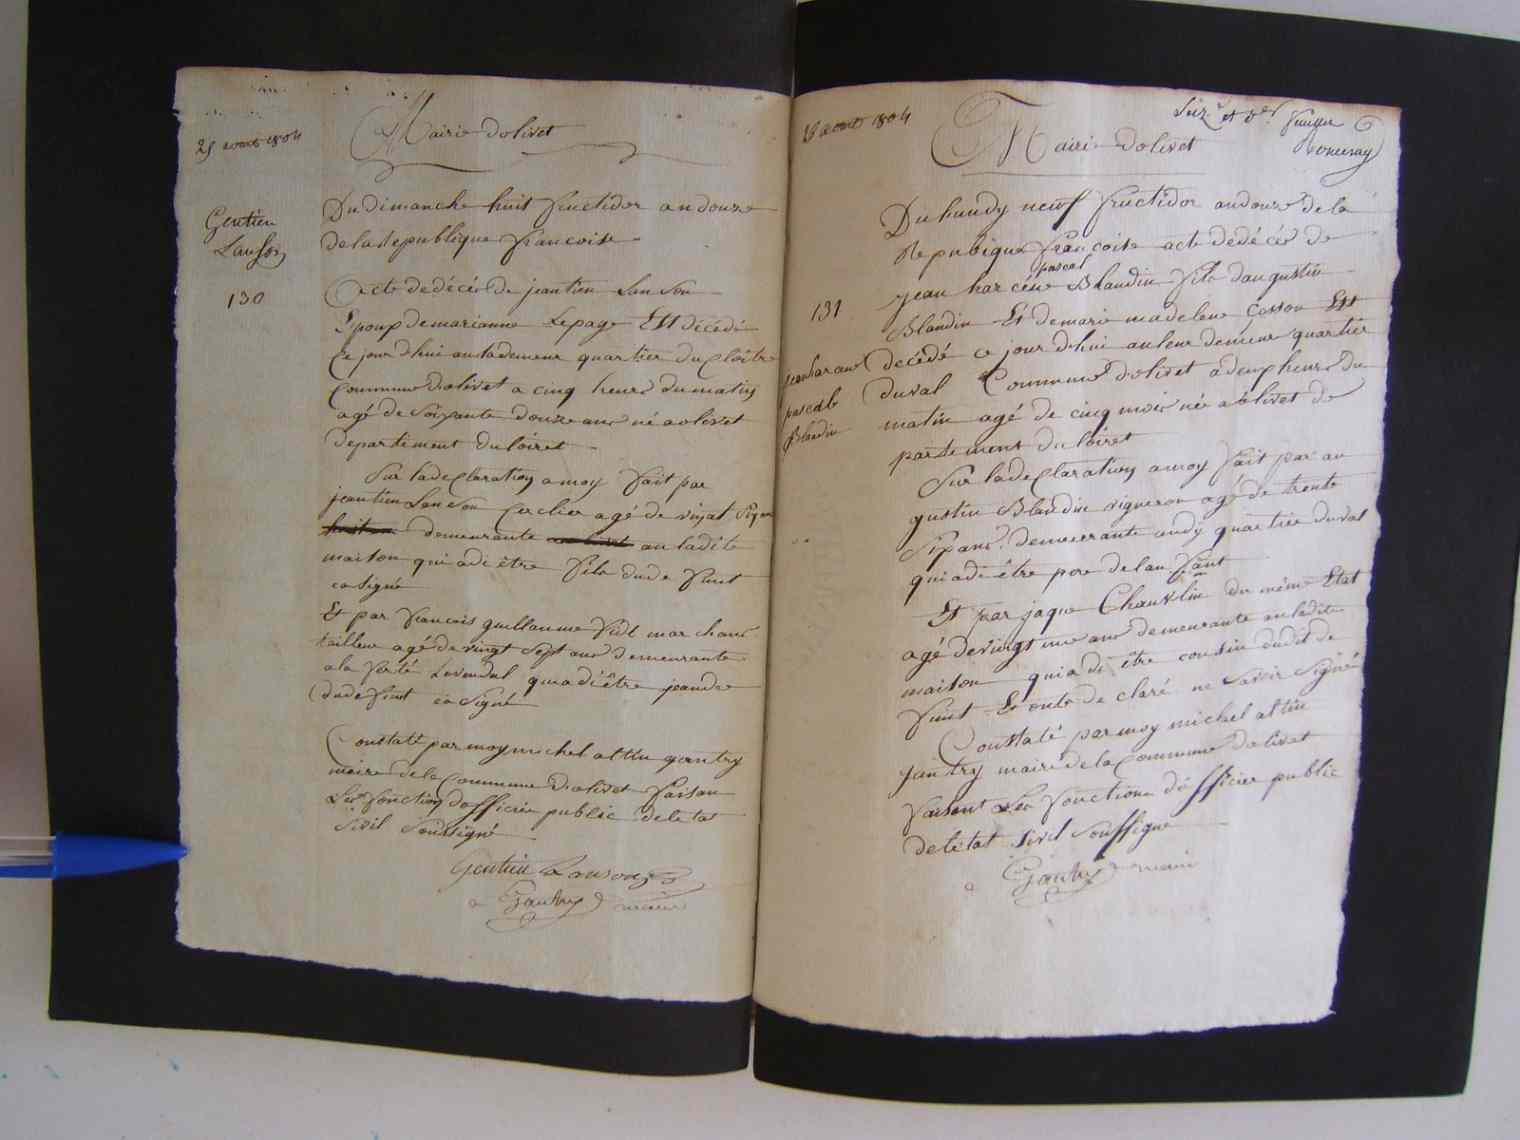 25 aout 1804
Mairie dolivet
Gentien
Lanson
130
Du dimanche huit fructidor an douze
de la Republique francoise
Acte dedécés de jeantien Lanson
Epoux demarianne Lepage Est décédé
Ce jour dhui au sademeur quartier du Cloitre
Commune dolivet a cinq heures du matin
agé de soixante douze ans né a olivet
departement du loiret
Sur ladeClaration amoy fait par
jeantien Lanson Cerclier agé de vingt
demeurante au ladite
maison qui adi être fils dude funt
ca Signé
Et par francois guillaume vidl marchand
tailleur agé de vingt Sept ans demeurante
a la ferté Lowendal qui adi être jeandre
dudefunt ca Signé
Constaté par moy michel altin gantry
maire dela Commune dolivet faisan
Les fonction dofficier public deletat
Sivil Soussigné
Gentien Lanson
Gautry maire
26 aout 1804
Suz.
Mairie dolivet
Du lundy neuf fructidor andouze dela
Repubique françoise acte dedécés de
pascal
jean harcene Blandin fils daugustin
131
Blandin Et demarie madelene Cosson Est
decédé ce jour dhui auleur demeur quartier
duval Commune dolivet adeux heures du
matin agé de cinq mois né a olivet de
partement du loiret
pascalb
Blandin
Sur ladeClaration amoy fait par au
gustin Blandin vigneron agé de trente
Sixans demeurante audy quartier duval
qui adi être pere delan fant
Et par jaque Chauvlin du même Etat
agé devingt une ans demeurante au ladite
maison qui a di être cousin dudit de
funt Et onte de claré ne Savoir Signé
Constaté par moy michel altin
jantry maire dela Commune dolivet
faisent Les fonctions dofficier public
deletat Sivil Soussigne
Gautry maire